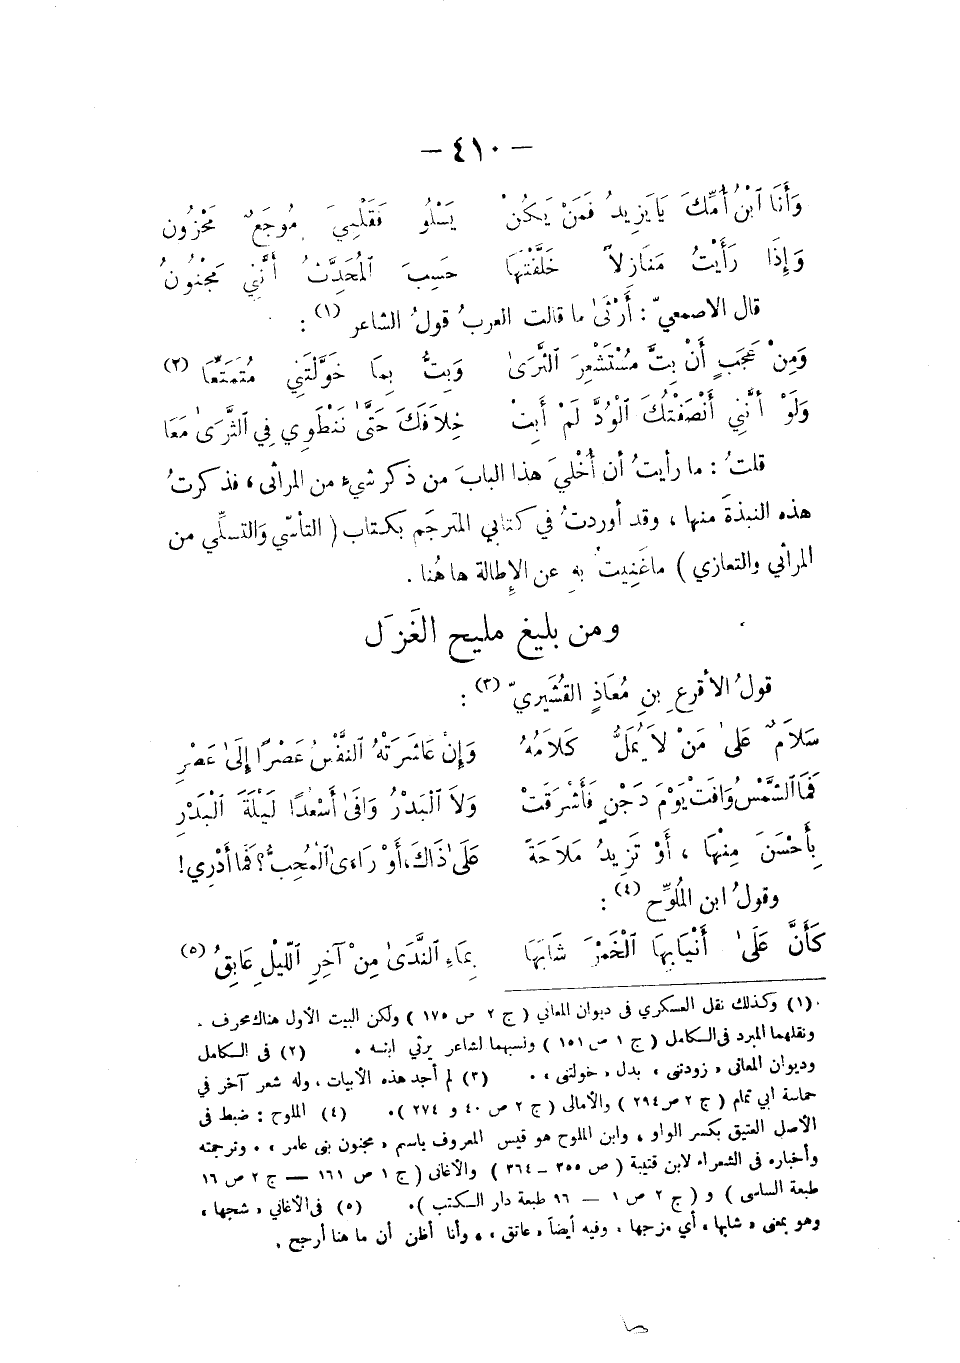 — ٤١٠ —
وَأَنَا ٱبْنُ أُمِّكَ يَا يَزِيدُ فَمَنْ يَكُنْ يَسْلُو فَقَلْبِيَ مُوجَعٌ مَحْزُون
وَإِذَا رَأَيْتُ مَنَازِلاً خَلَّفْتَهَا حَسِبَ ٱلْمُحَدِّثُ أَنَّنِي مَجْنُونُ
قال الاصمعيّ : أَرْثَىٰ ما قالت العربُ قولُ الشاعر (١) :
وَمِنْ عَجَبٍ أَنْ بِتَّ مُسْتَشْعِرَ ٱلثَّرَىٰ وَبِتُّ بِمَا خَوَّلْتَنِي مُتَمَتِّعَا (٢)
وَلَوْ أَنَّنِي أَنْصَفْتُكَ ٱلْوُدَّ لَمْ أَبِتْ خِلَافَكَ حَتَّىٰ نَنْطَوِي فِي الثَّرَىٰ مَعَا
قلتُ : ما رأيتُ أن أُخْليَ هذا البابَ من ذكر شيء من المراثى ، فذكرتُ
هذه النبذةَ منها ، وقد أوردتُ في كتابي المترجَم بكتاب ( التأسّي والتسلِّي من
المراثي والتعازي ) ماغَنِيتُ بهِ عن الإطالة ها هُنا .
ومن بليغ مليح الغَزَل
قولُ الأقرعِ بنِ مُعَاذٍ القُشَيريّ (٣) :
سَلَامٌ عَلَىٰ مَنْ لَا يُمَلُّ كَلَامُهُ وَإِنْ عَاشَرَتْهُ ٱلنَّفْسُ عَصْرًا إِلَىٰ عَصْرِ
فَمَا ٱلشَّمْسُ وَافَتْ يَوْمَ دَجْنٍ فَأَشْرَقَتْ وَلَا ٱلْبَدْرُ وَافَىٰ أَسْعُدًا لَيْلَةَ ٱلْبَدْرِ
بِأَحْسَنَ مِنْهَا ، أَوْ تَزِيدُ مَلَاحَةً عَلَىٰ ذَاكَ، أَوْ رَاءَى ٱلْمُحِبُّ؟ فَمَا أَدْرِي!
وقولُ ابن المُلوِّح (٤) :
كَأَنَّ عَلَىٰ أَنْيَابِهَا ٱلْخَمْرَ شَابَهَا بِمَاءِ النَّدَىٰ مِنْ آخِرِ ٱللَّيْلِ غَابِقُ (٥)
(١) وكذلك نقل العسكري فى ديوان المعاني ( ج ٢ ص ١٧٥ ) ولكن البيت الأول هناك محرف .
ونقلهما المبرد فى الكامل ( ج ١ ص ١٥١ ) ونسبهما لشاعر يرثي ابنه . (٢) فى الكامل
وديوان المعانى « زودتنى » بدل « خولتنى » . (٣) لم أجد هذه الأبيات ، وله شعر آخر في
حماسة ابي تمام ( ج ٢ ص ٢٩٤ ) والأمالى ( ج ٢ ص ٤٠ و ٢٧٤ ). (٤) الملوح : ضبط فى
الأصل العتيق بكسر الواو ، وابن الملوح هو قيس المعروف باسم « مجنون بنى عامر » . وترجمته
وأخباره فى الشعراء لابن قتيبة ( ص ٣٥٥ - ٣٦٤ ) والأغانى ( ج ١ ص ١٦١ — ج ٢ ص ١٦
طبعة الساسى ) و ( ج ٢ ص ١ — ٩٦ طبعة دار الكتب ). (٥) فى الأغاني « شجها »
وهو بمعنى « شابها » أي مزجها . وفيه أيضاً « عاتق » ، وأنا أظن أن ما هنا أرجح .